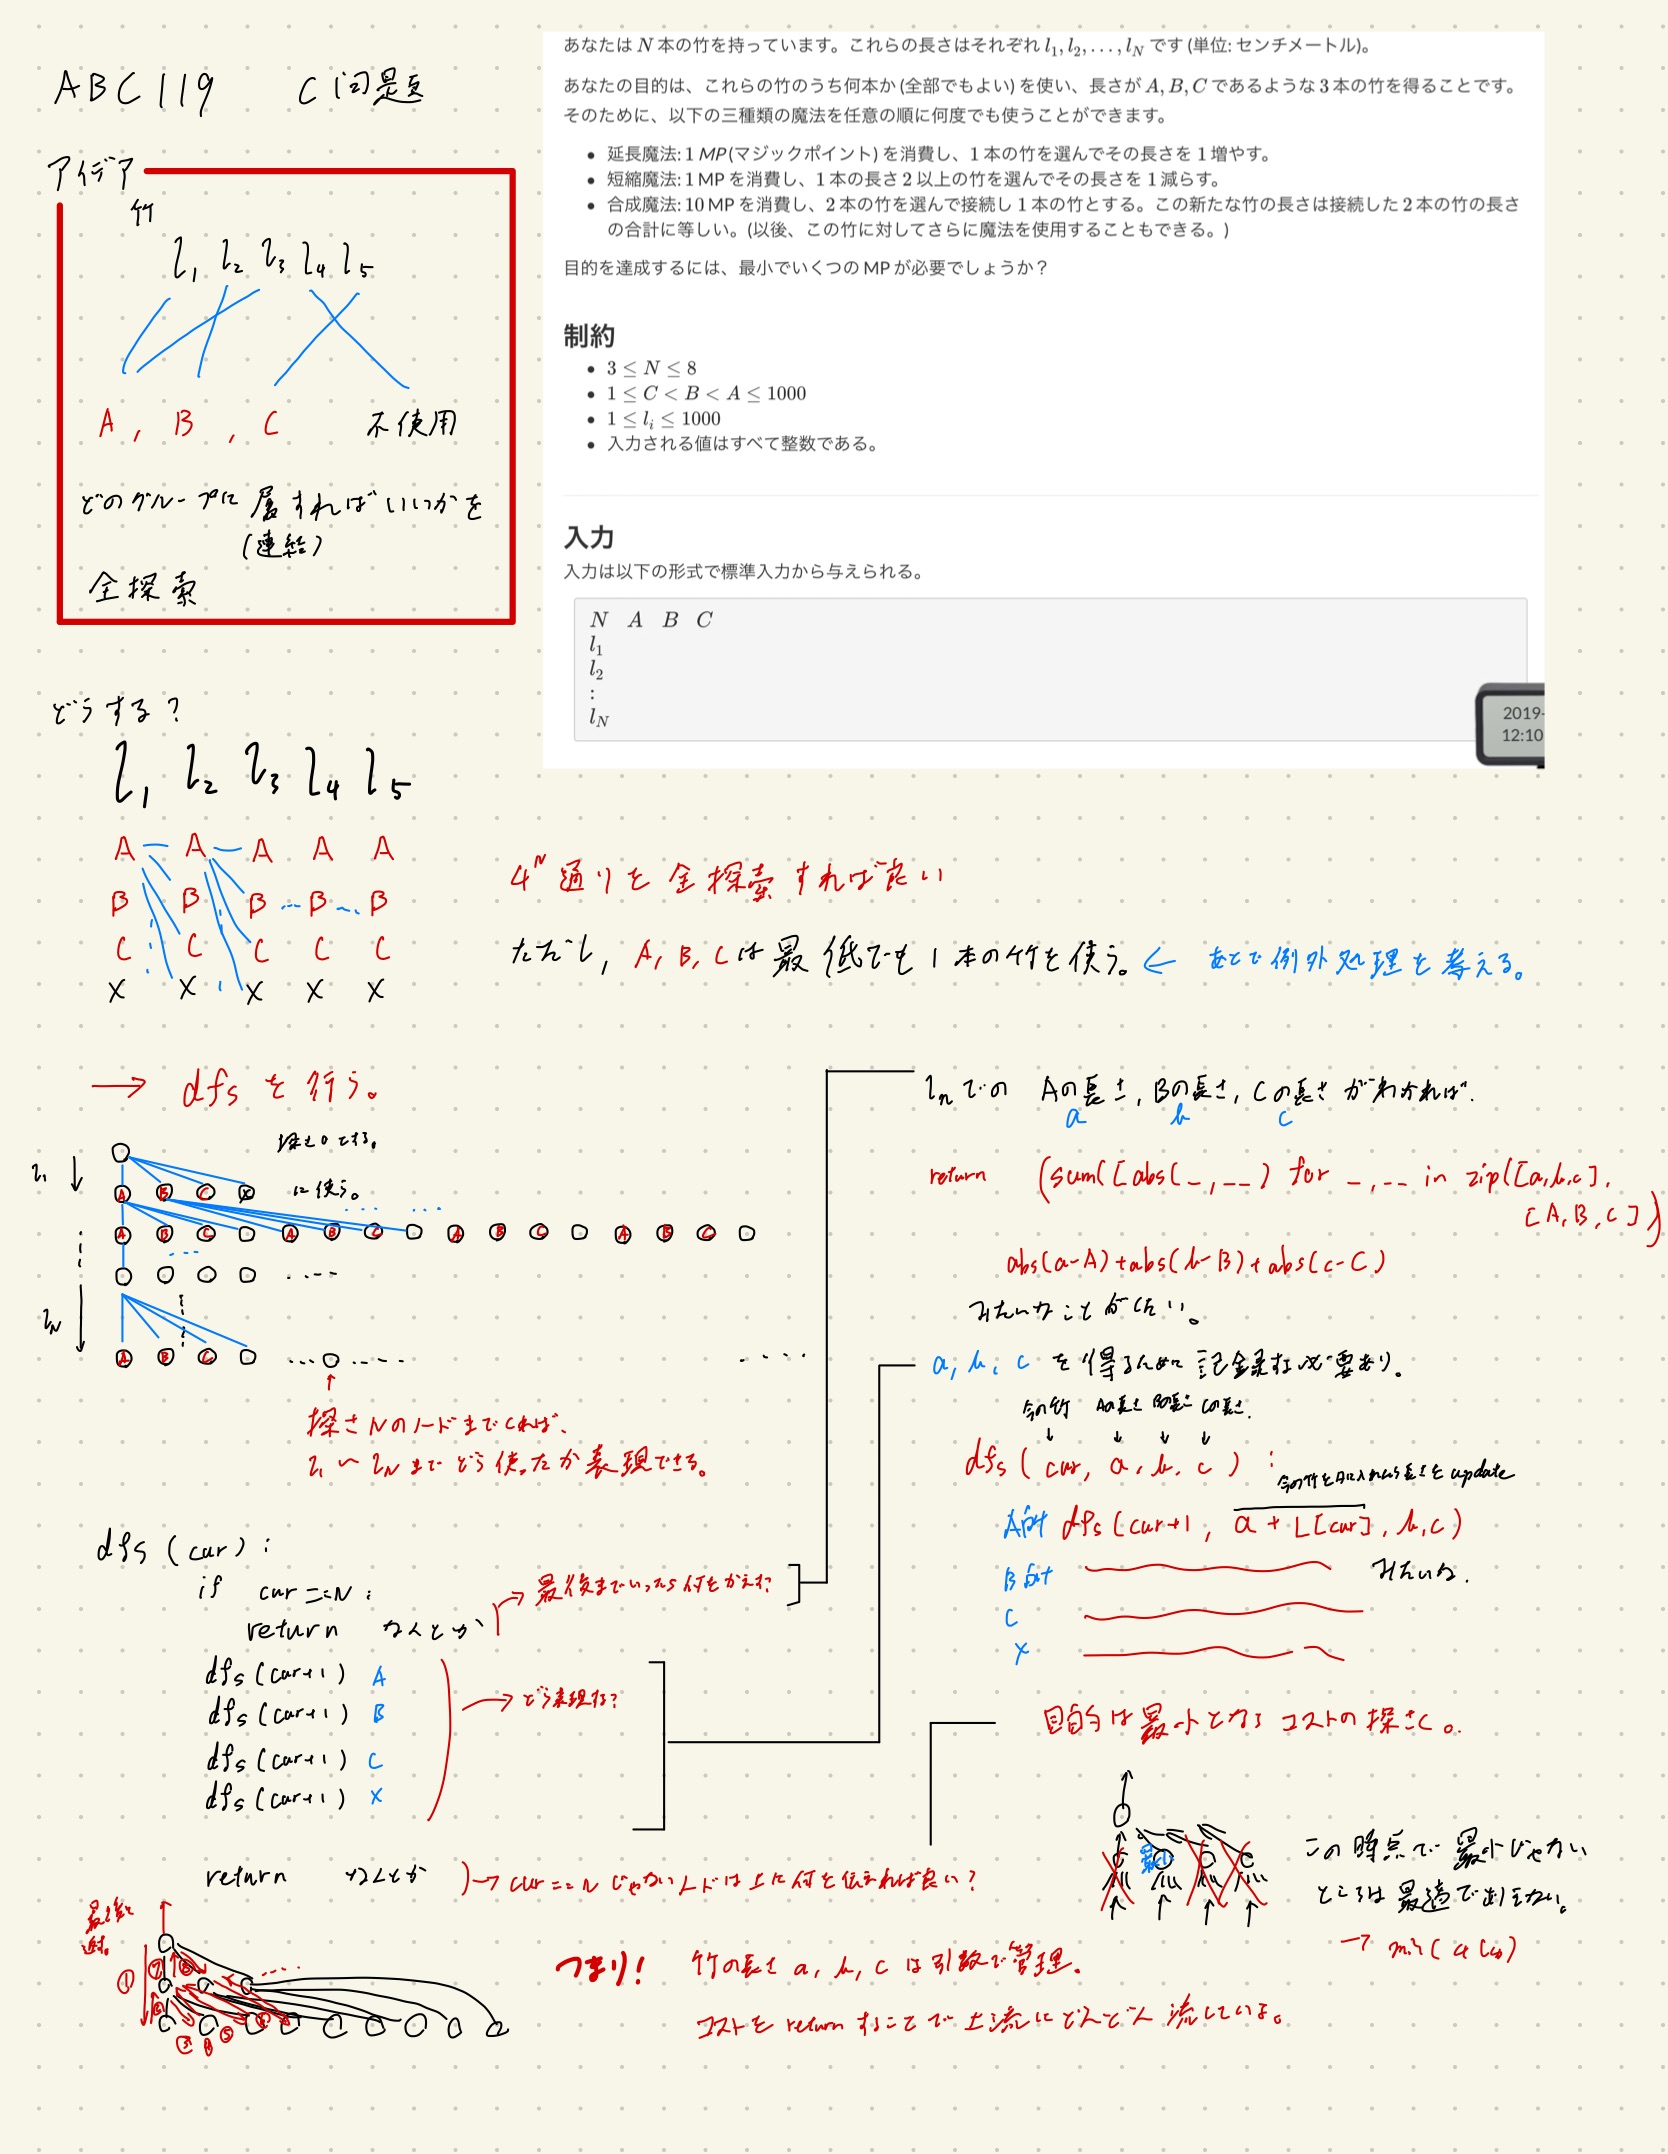 ABC119 C問題
アイデア
竹
l1 l2 l3 l4 l5
A , B , C 不使用
どのグループに属すればいいかを
(連結)
全探索
あなたは N 本の竹を持っています。これらの長さはそれぞれ l1, l2, . . . , lN です (単位: センチメートル)。
あなたの目的は、これらの竹のうち何本か (全部でもよい) を使い、長さが A, B, C であるような 3 本の竹を得ることです。
そのために、以下の三種類の魔法を任意の順に何度でも使うことができます。
• 延長魔法: 1 MP (マジックポイント) を消費し、1 本の竹を選んでその長さを 1 増やす。
• 短縮魔法: 1 MP を消費し、1 本の長さ 2 以上の竹を選んでその長さを 1 減らす。
• 合成魔法: 10 MP を消費し、2 本の竹を選んで接続し 1 本の竹とする。この新たな竹の長さは接続した 2 本の竹の長さ
の合計に等しい。(以後、この竹に対してさらに魔法を使用することもできる。)
目的を達成するには、最小でいくつの MP が必要でしょうか?
制約
• 3 ≤ N ≤ 8
• 1 ≤ C < B < A ≤ 1000
• 1 ≤ li ≤ 1000
• 入力される値はすべて整数である。
入力
入力は以下の形式で標準入力から与えられる。
N A B C
l1
l2
:
lN
2019-
12:10
どうする?
l1 l2 l3 l4 l5
A A A A A
B B B B B
C C C C C
X X X X X
4^N 通りを全探索すれば良い
ただし, A, B, C は最低でも1本の竹を使う。← あとで例外処理を考える。
→ dfs を行う。
深さ0とする。
l1
A B C X に使う。
A B C A B C A B C A B C
lN
A B C
深さNのノードまでくれば、
l1 〜 lN までどう使ったか表現できる。
dfs (cur) :
if cur == N :
return なんとか
→ 最後までいったら何をかえす?
dfs (cur+1) A
dfs (cur+1) B
dfs (cur+1) C
dfs (cur+1) X
→ どう表現する?
return なんとか
→ cur == N じゃないノードは上に何を伝えれば良い?
lnでの Aの長さ, Bの長さ, Cの長さ がわかれば.
a b c
return (sum([abs(_,__) for _,__ in zip([a,b,c],
[A,B,C])
abs(a-A)+abs(b-B)+abs(c-C)
みたいなことがしたい。
a, b, c を得るために記録する必要あり。
今の竹 Aの長さ Bの長さ Cの長さ.
dfs ( cur, a, b, c ) :
今の竹をAに入れたら長さを update
A付 dfs (cur+1, a + L[cur], b, c)
B 付 みたいな.
C
X
目的は最小となるコストの探さく。
最小
この時点で最小じゃない
ところは最適であり得ない。
→ min( a (co)
① ② ⑤
つまり! 竹の長さ a, b, c は引数で管理.
コストを return することで上流にどんどん流していく。